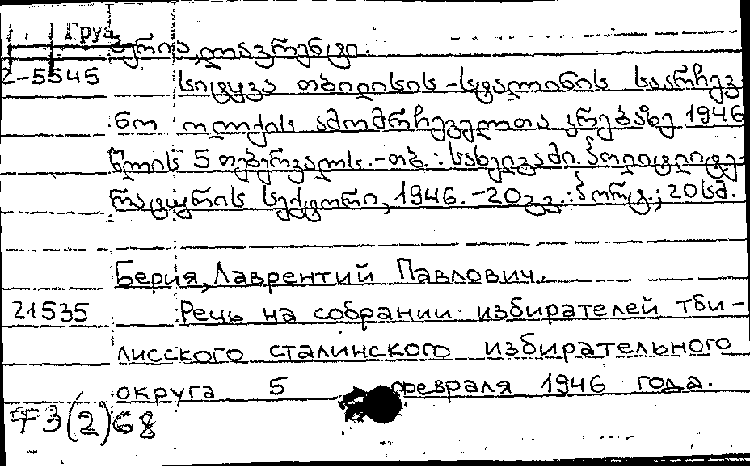 Груз
ბერია, ლავრენტი.
2-5545
სიტყვა თბილისის-სტალინის საარჩევ-
ნო ოლქის ამომრჩეველთა კრებაზე 1946
წლის 5 თებერვალს.-თბ.: სახელგამი. პოლიტლიტე-
რატურის სექტორი, 1946.-20გვ.: პორტ.; 20სმ.
Берия, Лаврентий Павлович.
21535 Речь на собрании избирателей тби-
лисского сталинского избирательного
округа 5 февраля 1946 года.
ТЗ(2)68